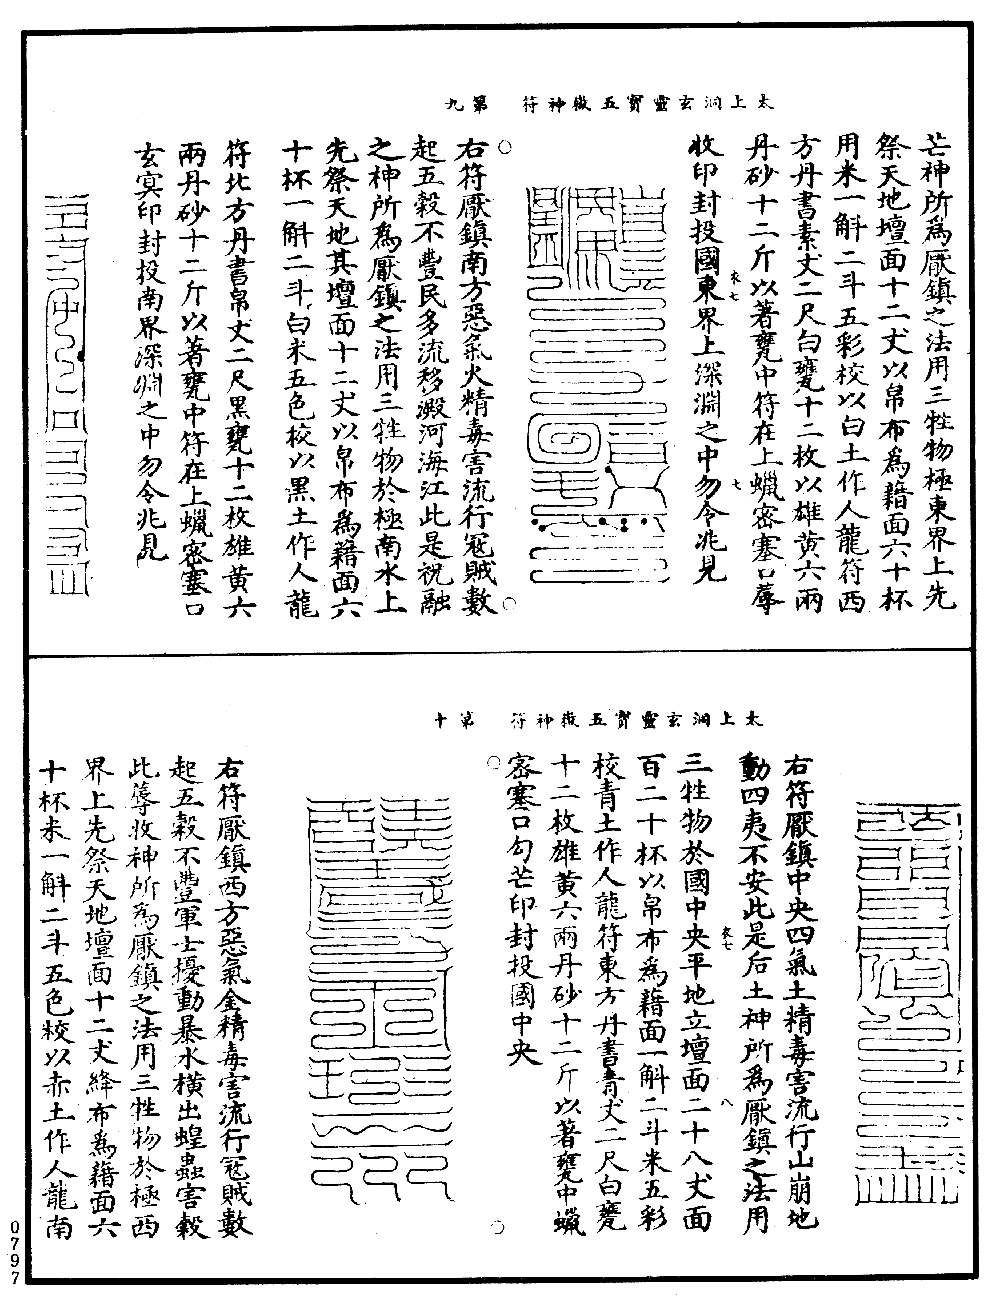 太上洞玄靈寶五嶽神符　第九
芒神所為厭鎮之法用三牲物極東界上先
祭天地壇面十二丈以帛布為藉面六十杯
用米一斛二斗五彩校以白土作人龍符西
方丹書素丈二尺白甕十二枚以雄黃六兩
丹砂十二斤以著甕中符在上蠟密塞口蓐
衣七
七
收印封投國東界上深淵之中勿令兆見
右符厭鎮南方惡氣火精毒害流行冦賊數
起五穀不豐民多流移澱河海江此是祝融
之神所為厭鎮之法用三牲物於極南水上
先祭天地其壇面十二丈以帛布為藉面六
十杯一斛二斗白米五色校以黑土作人龍
符北方丹書帛丈二尺黑甕十二枚雄黃六
兩丹砂十二斤以著甕中符在上蠟密塞口
玄冥印封投南界深淵之中勿令兆見
太上洞玄靈寶五嶽神符　第十
右符厭鎮中央四氣土精毒害流行山崩地
動四夷不安此是后土神所為厭鎮之法用
衣七
八
三牲物於國中央平地立壇面二十八丈面
百二十杯以帛布為藉面一斛二斗米五彩
校青土作人龍符東方丹書青丈二尺白甕
十二枚雄黃六兩丹砂十二斤以著甕中蠟
密塞口勾芒印封投國中央
右符厭鎮西方惡氣金精毒害流行冦賊數
起五穀不豐軍士擾動暴水橫出蝗蟲害穀
此蓐收神所為厭鎮之法用三牲物於極西
界上先祭天地壇面十二丈絳布為藉面六
十杯米一斛二斗五色校以赤土作人龍南
0797